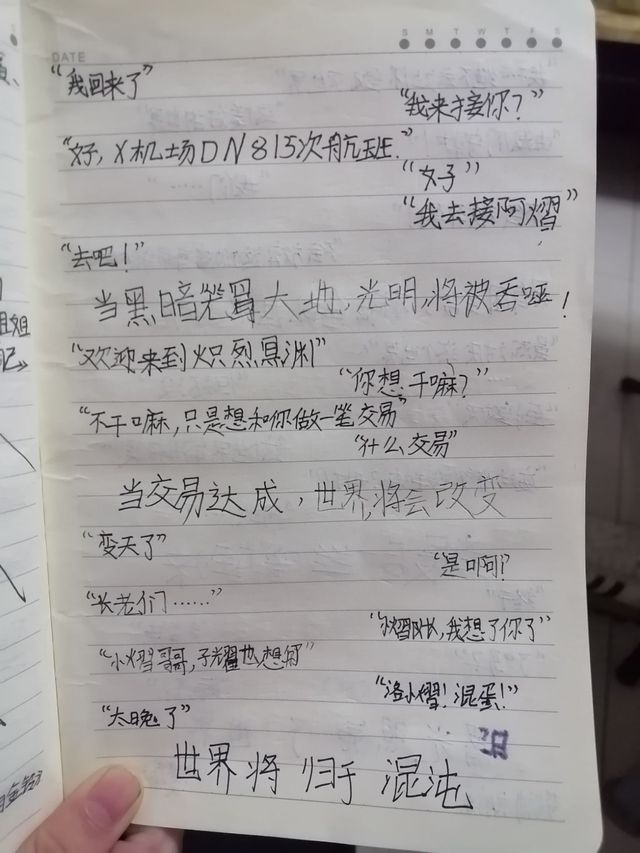 DATE
S M T W T F S
“我回来了”
“我来接你？”
“好，X机场DN815次航班.”
“好”
“我去接阿熠”
“去吧！”
当黑暗笼罩大地，光明，将被吞噬！
“欢迎来到炽烈黑渊”
“你想干嘛？”
“不干嘛，只是想和你做一笔交易”
“什么交易”
当交易达成，世界，将会改变
“变天了”
“是啊？”
“长老们……”
“小熠队长，我想了你了”
“小熠哥哥，子耀也想你”
“洛小熠！混蛋！”
“太晚了”
世界将归于混沌